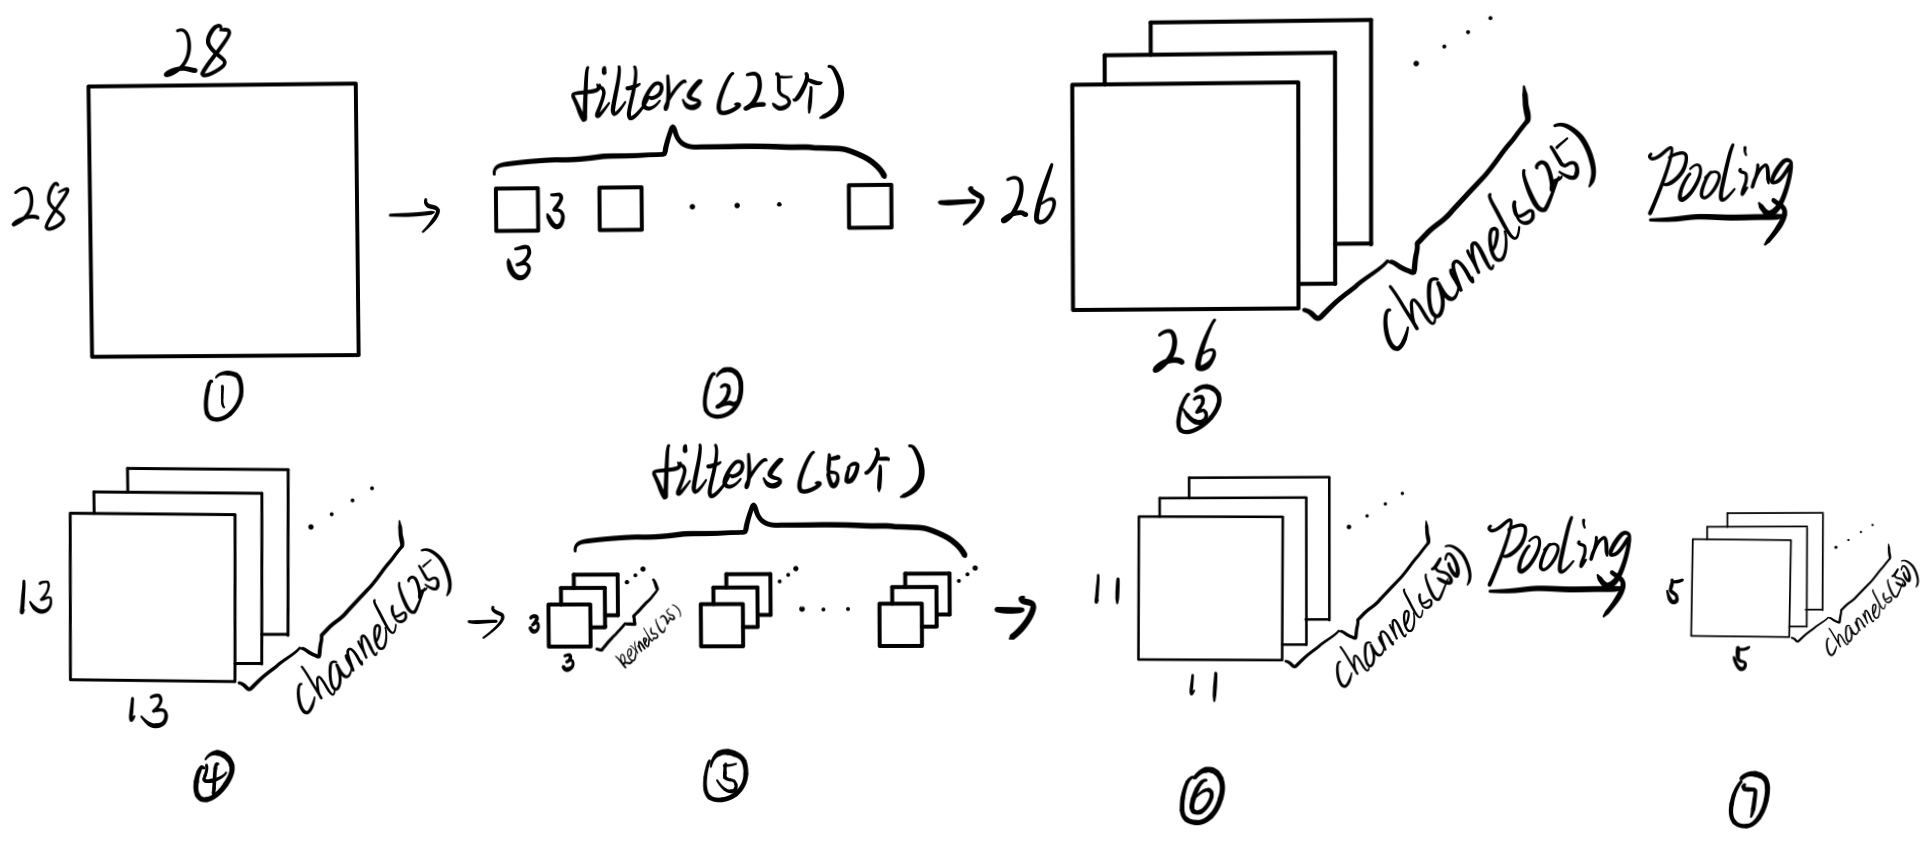 28
28
filters (25个)
3
3
26
26
channels(25)
Pooling
①
②
③
13
13
channels(25)
filters (50个)
3
3
kernels(25)
11
11
channels(50)
Pooling
5
5
channels(50)
④
⑤
⑥
⑦